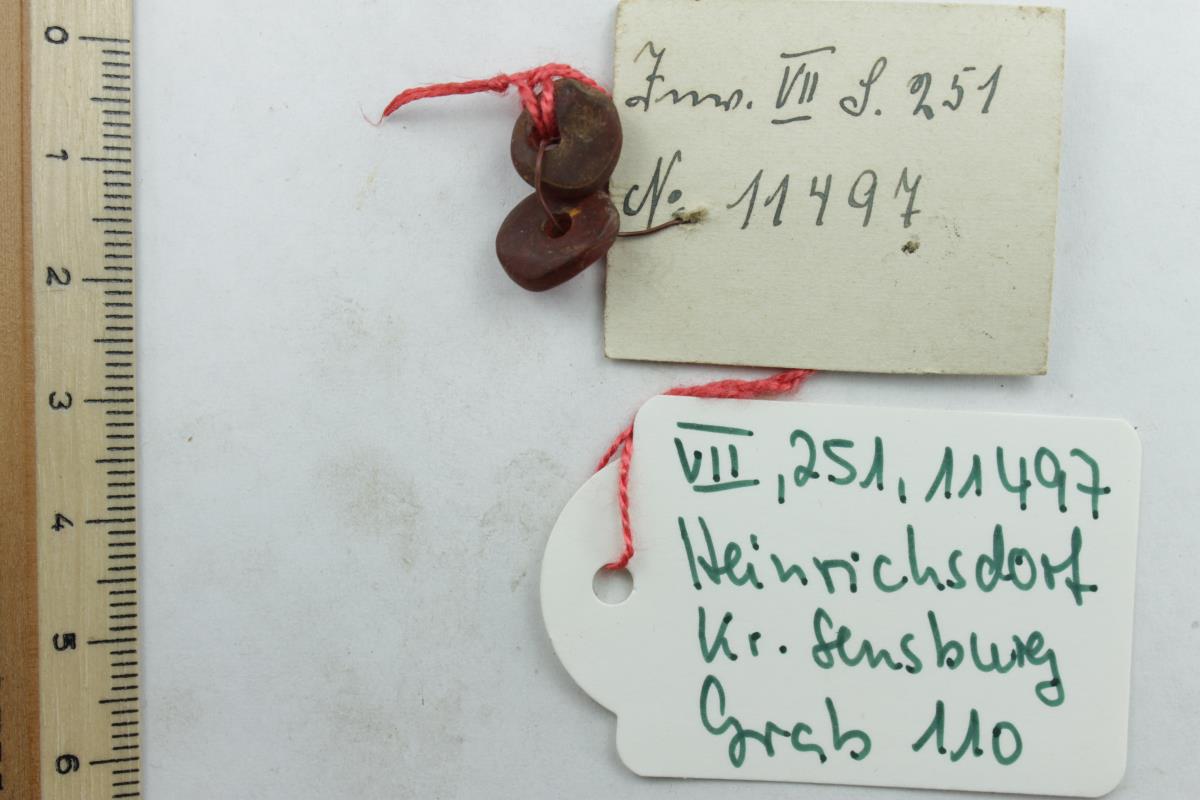 Inv. VII S. 251
No. 11497
VII, 251, 11497
Heinrichsdorf
Kr. Sensburg
Grab 110
0
1
2
3
4
5
6